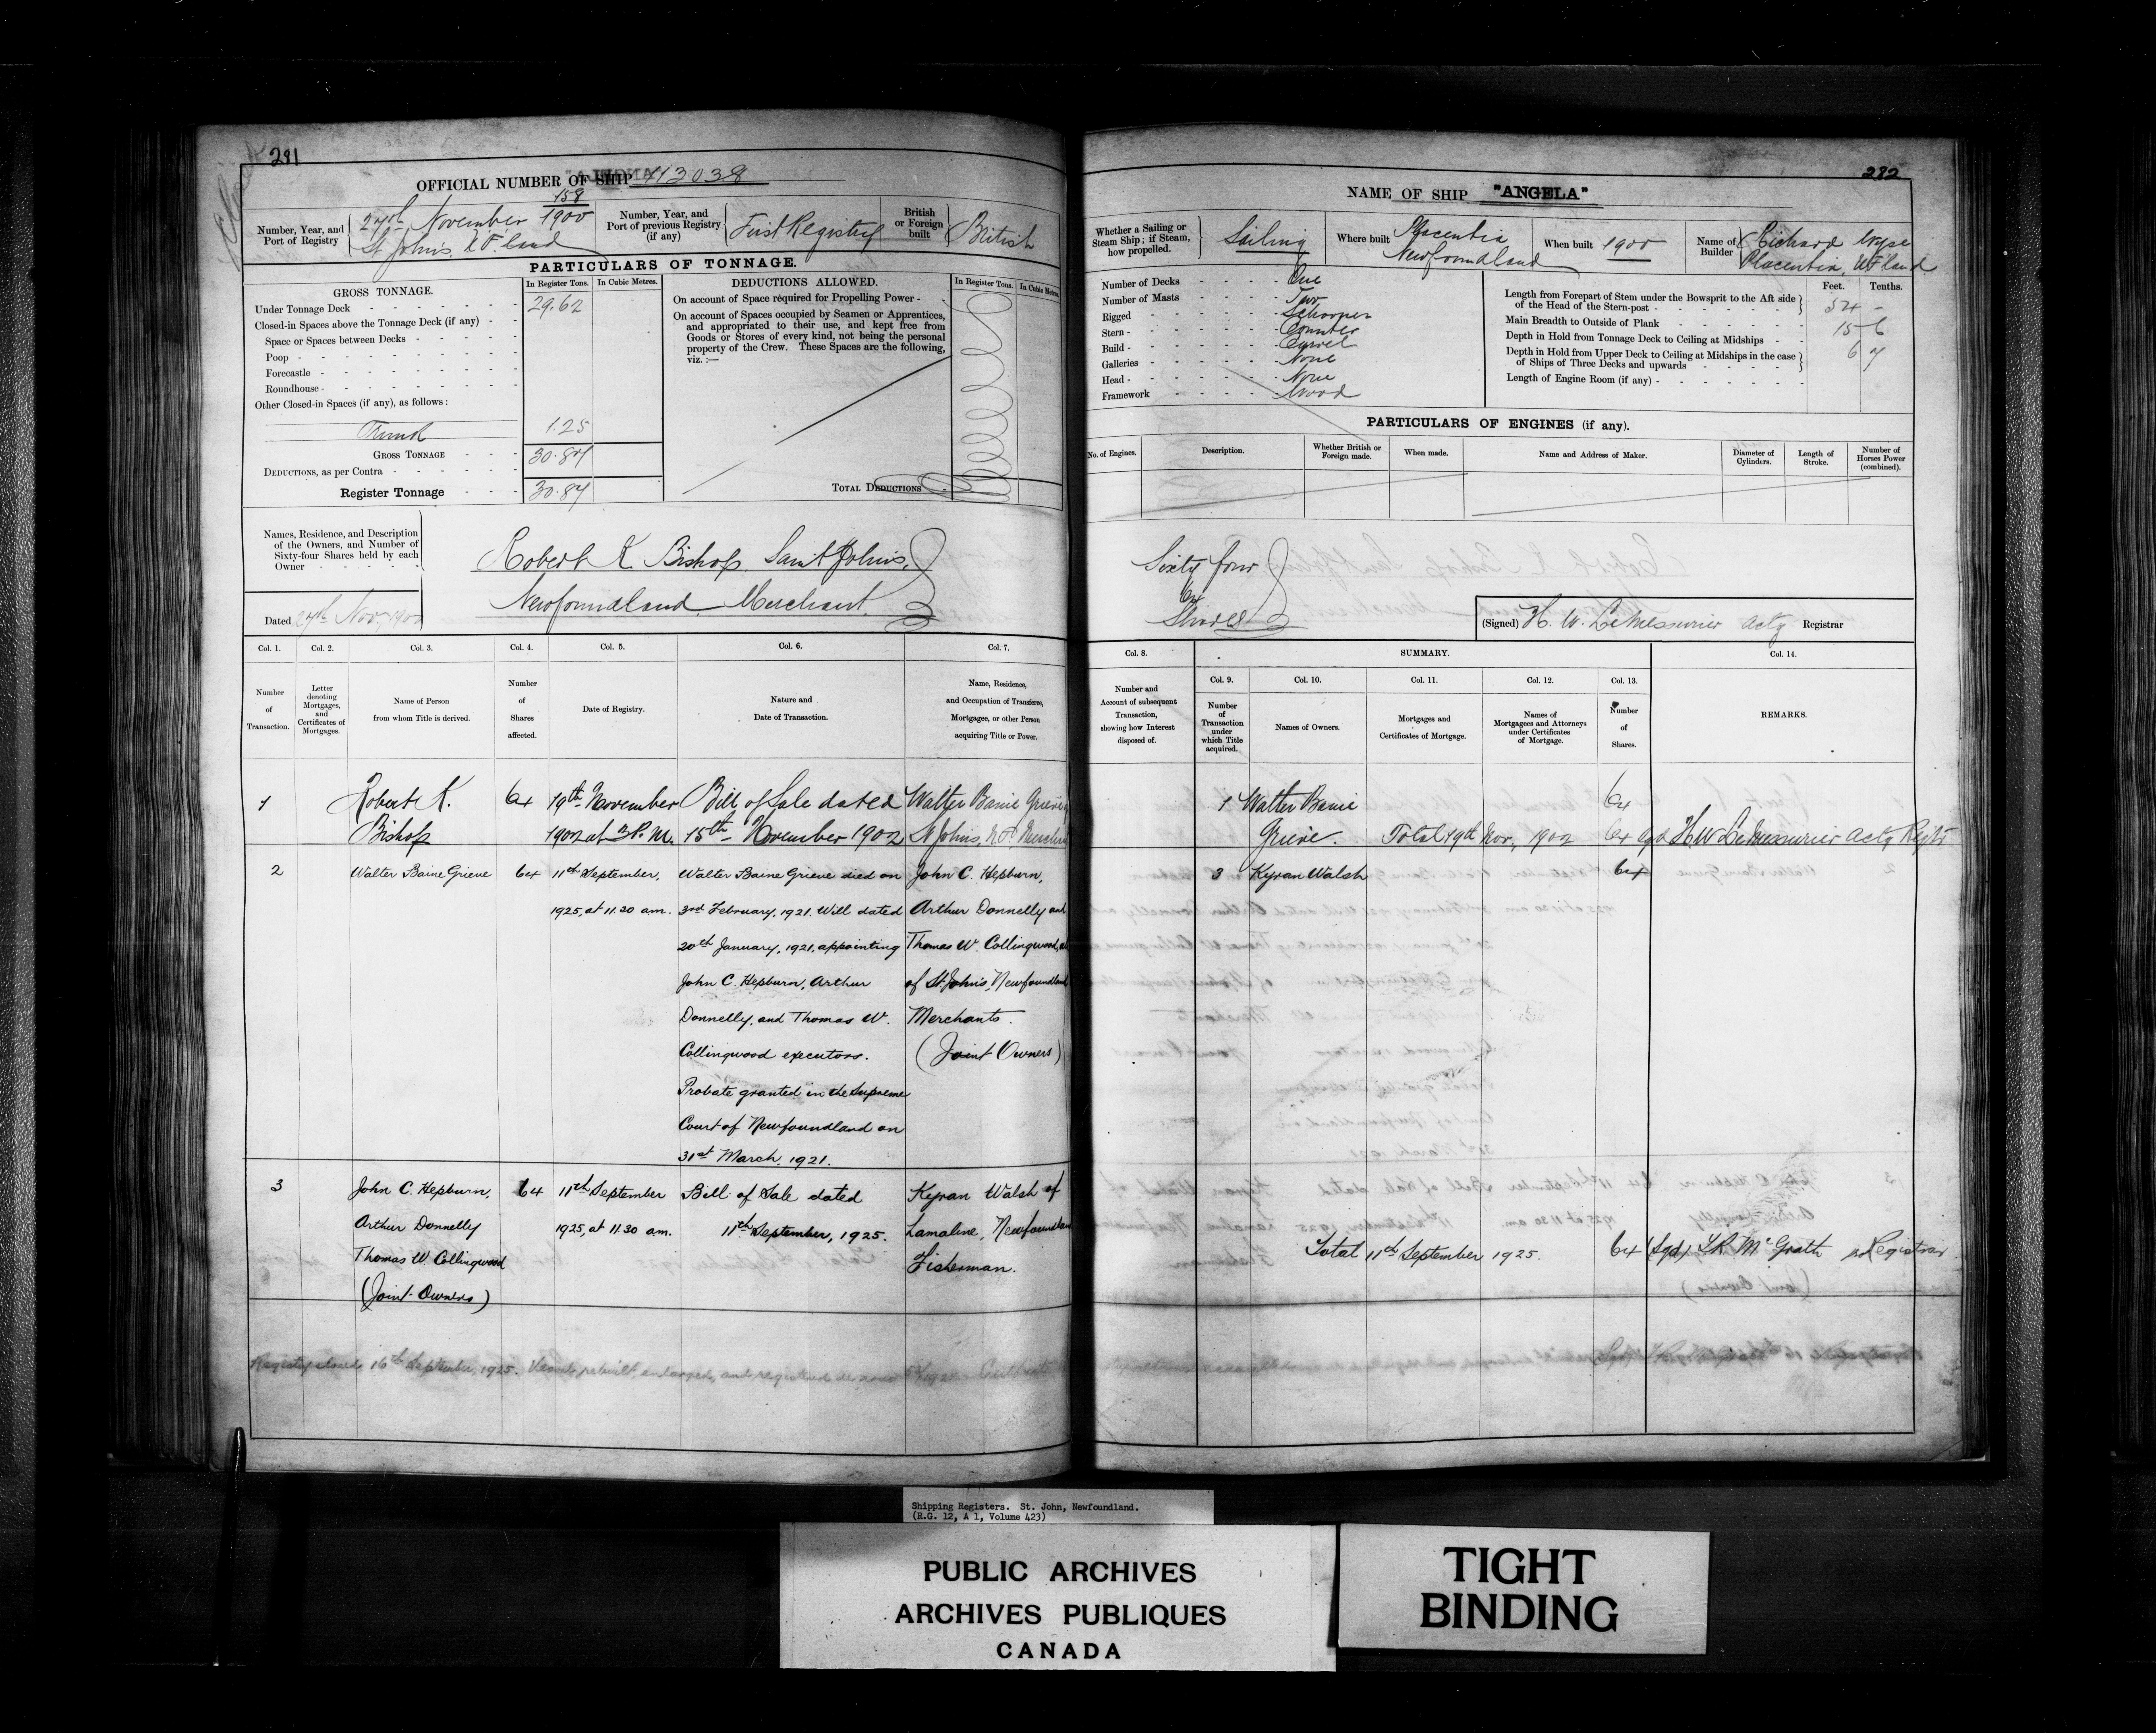 281
OFFICIAL NUMBER OF SHIP 113038
Number, Year, and Port of Registry
158
27th November 1900
St Johns, N.F.land
Number, Year, and Port of previous Registry (if any)
First Registry
British or Foreign built
British
PARTICULARS OF TONNAGE.
GROSS TONNAGE.
In Register Tons. In Cubic Metres.
Under Tonnage Deck 29.62
Closed-in Spaces above the Tonnage Deck (if any)
Space or Spaces between Decks
Poop
Forecastle
Roundhouse
Other Closed-in Spaces (if any), as follows:
Trunk 1.25
GROSS TONNAGE 30.87
DEDUCTIONS, as per Contra
Register Tonnage 30.87
DEDUCTIONS ALLOWED.
In Register Tons. In Cubic Metres.
On account of Space required for Propelling Power
On account of Spaces occupied by Seamen or Apprentices,
and appropriated to their use, and kept free from
Goods or Stores of every kind, not being the personal
property of the Crew. These Spaces are the following,
viz.:—
TOTAL DEDUCTIONS
Names, Residence, and Description
of the Owners, and Number of
Sixty-four Shares held by each
Owner
Robert K Bishop Saint Johns,
Newfoundland Merchant.
Dated 27th Nov, 1900
Col. 1. Col. 2. Col. 3. Col. 4. Col. 5. Col. 6. Col. 7.
Number of Transaction.
Letter denoting Mortgages, and Certificates of Mortgages.
Name of Person from whom Title is derived.
Number of Shares affected.
Date of Registry.
Nature and Date of Transaction.
Name, Residence, and Occupation of Transferee, Mortgagee, or other Person acquiring Title or Power.
1 Robert K. 64 19th November Bill of Sale dated Walter Baine Grieve
Bishop 1902 at 3 P.M. 15th November 1902 St Johns, N.F.
2 Walter Baine Grieve 64 11th September, Walter Baine Grieve died on John C. Hepburn,
1925, at 11.30 am. 3rd February, 1921. Will dated Arthur Donnelly and
20th January, 1921, appointing Thomas W. Collingwood, all
John C. Hepburn, Arthur of St. John's, Newfoundland
Donnelly, and Thomas W. Merchants.
Collingwood executors. (Joint Owners)
Probate granted in the Supreme
Court of Newfoundland on
31st March, 1921.
3 John C. Hepburn, 64 11th September Bill of Sale dated Kyran Walsh of
Arthur Donnelly 1925, at 11.30 am. 11th September, 1925. Lamaline, Newfoundland
Thomas W. Collingwood Fisherman.
(Joint Owners)
Registry closed 16th September, 1925. Vessel rebuilt, enlarged, and registered de novo
282
NAME OF SHIP "ANGELA"
Whether a Sailing or Steam Ship; if Steam, how propelled.
Sailing
Where built
Placentia
Newfoundland
When built 1900
Name of Builder
Richard Wyse
Placentia, NF'land
Number of Decks One
Number of Masts Two
Rigged Schooner
Stern Counter
Build Carvel
Galleries None
Head None
Framework Wood
Feet. Tenths.
Length from Forepart of Stem under the Bowsprit to the Aft side of the Head of the Stern-post 54 -
Main Breadth to Outside of Plank 15 6
Depth in Hold from Tonnage Deck to Ceiling at Midships 6 7
Depth in Hold from Upper Deck to Ceiling at Midships in the case of Ships of Three Decks and upwards
Length of Engine Room (if any)
PARTICULARS OF ENGINES (if any).
No. of Engines. Description. Whether British or Foreign made. When made. Name and Address of Maker. Diameter of Cylinders. Length of Stroke. Number of Horses Power (combined).
Sixty four
64
Shares
(Signed) H. W. LeMessurier Actg Registrar
Col. 8. SUMMARY. Col. 14.
Col. 9. Col. 10. Col. 11. Col. 12. Col. 13.
Number and Account of subsequent Transaction, showing how Interest disposed of.
Number of Transaction under which Title acquired.
Names of Owners.
Mortgages and Certificates of Mortgage.
Names of Mortgagees and Attorneys under Certificates of Mortgage.
Number of Shares.
REMARKS.
1 Walter Baine 64
Grieve. Total 19th Nov, 1902 64 Sgd H.W LeMessurier Actg Regtr
3 Kyran Walsh 64
Total 11th September 1925. 64 (Sgd) McGrath Registrar
Shipping Registers. St. John, Newfoundland.
(R.G. 12, A 1, Volume 423)
PUBLIC ARCHIVES
ARCHIVES PUBLIQUES
CANADA
TIGHT
BINDING